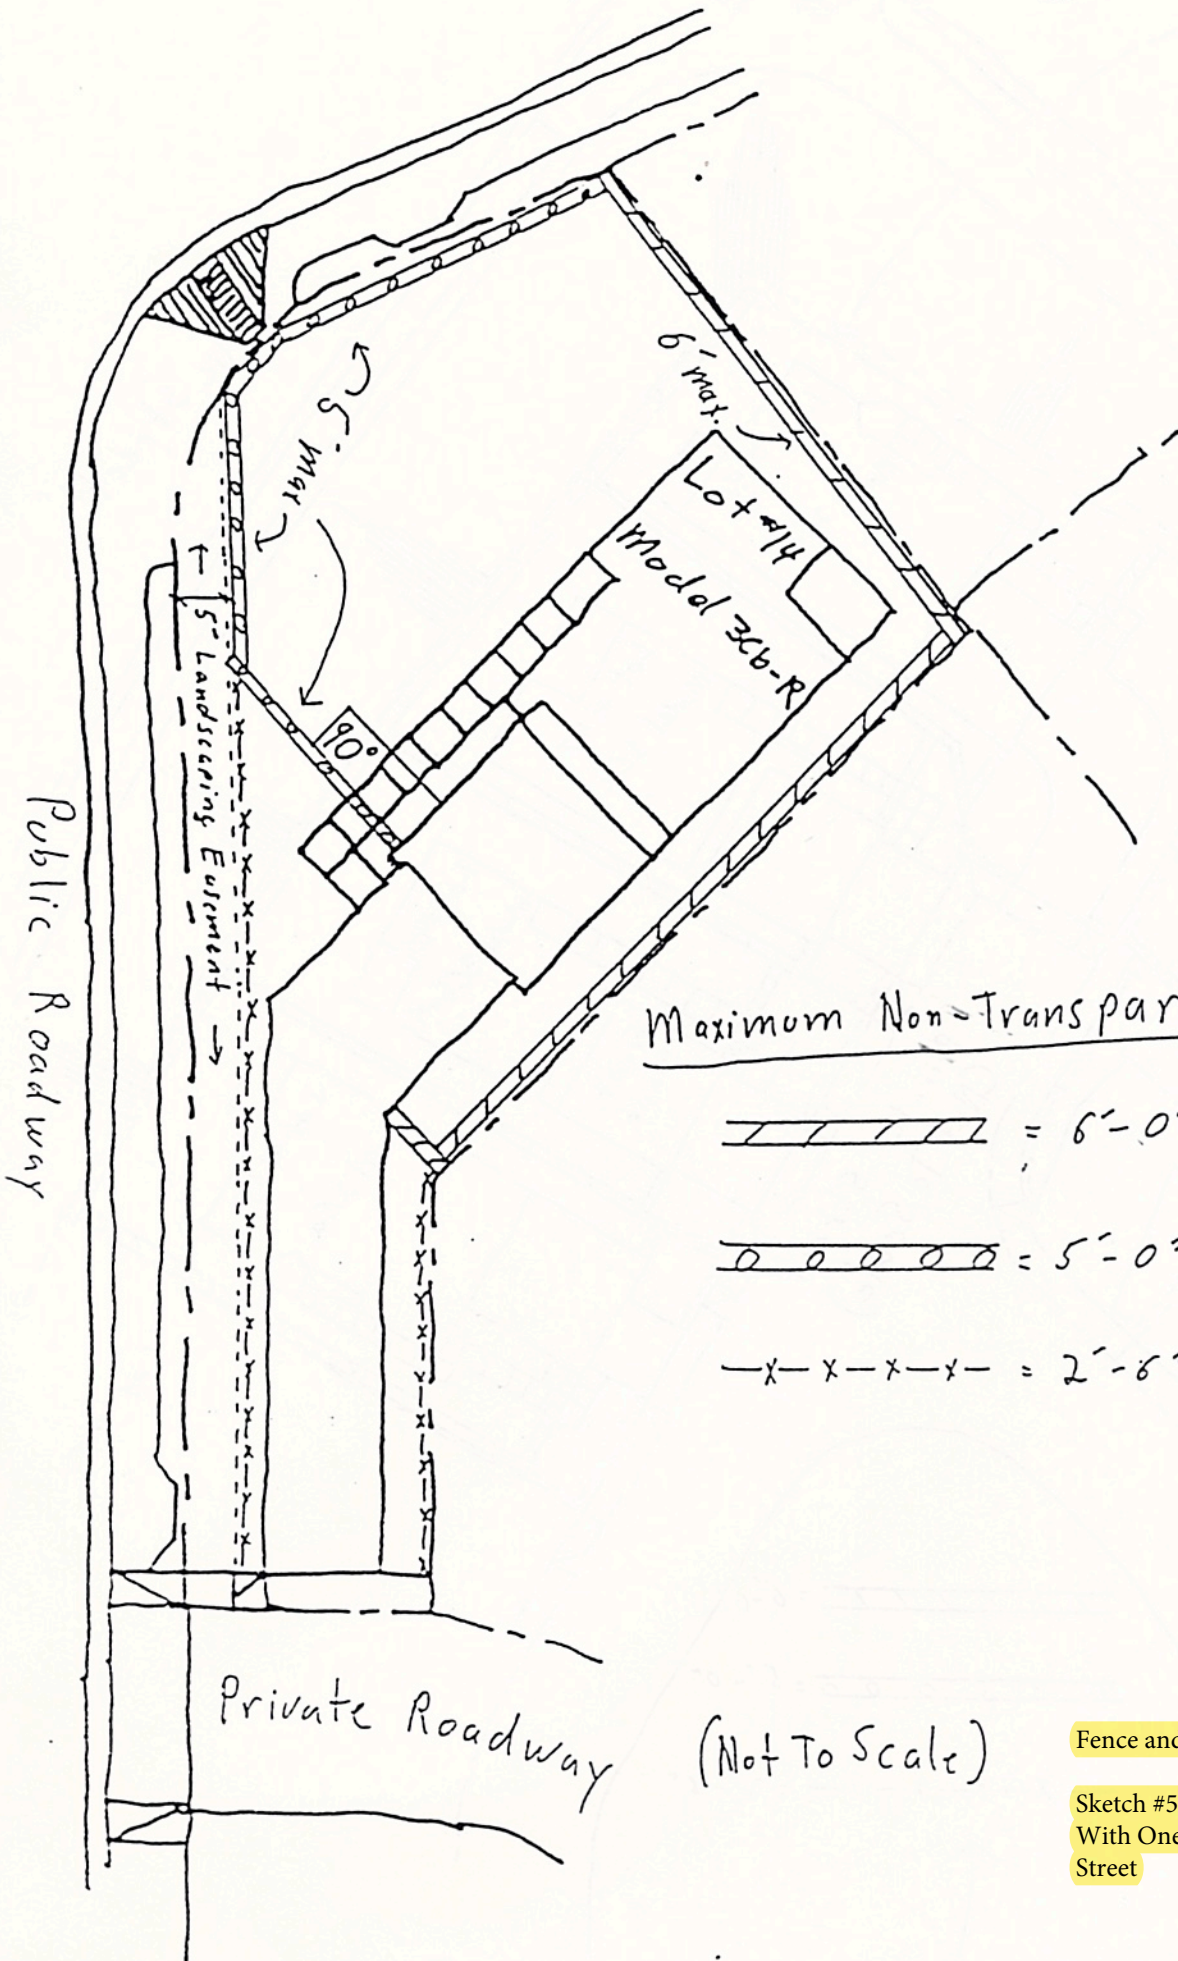 6' max.
5' Max
Lot #14
Model 3Cb-R
90°
← 5' Landscaping Easement →
Public Roadway
Maximum Non-Transpar
= 6'-0"
= 5'-0"
-x-x-x-x- = 2'-6"
Private Roadway
(Not To Scale)
Fence and
Sketch #5
With One
Street